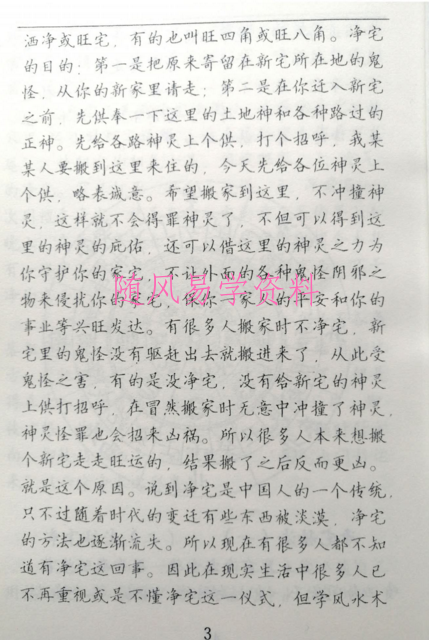 洒净或旺宅，有的也叫旺四角或旺八角。净宅
的目的：第一是把原来寄留在新宅所在地的鬼
怪，从你的新家里请走；第二是在你迁入新宅
之前，先供奉一下这里的土地神和各种路过的
正神。先给各路神灵上个供，打个招呼，我某
某人要搬到这里来住的，今天先给各位神灵上
个供，略表诚意。希望搬家到这里，不冲撞神
灵，这样就不会得罪神灵了，不但可以得到这
里的神灵的庇佑，还可以借这里的神灵之力为
你守护你的家宅，不让外面的各种鬼怪阴邪之
物来侵扰你的家宅，保你一家人的平安和你的
随风易学资料
事业等兴旺发达。有很多人搬家时不净宅，新
宅里的鬼怪没有驱赶出去就搬进来了，从此受
鬼怪之害，有的是没净宅，没有给新宅的神灵
上供打招呼，在冒然搬家时无意中冲撞了神灵，
神灵怪罪也会招来凶祸。所以很多人本来想搬
个新宅走走旺运的，结果搬了之后反而更凶。
就是这个原因。说到净宅是中国人的一个传统，
只不过随着时代的变迁有些东西被淡漠，净宅
的方法也逐渐流失。所以现在有很多人都不知
道有净宅这回事。因此在现实生活中很多人已
不再重视或是不懂净宅这一仪式，但学风水术
3